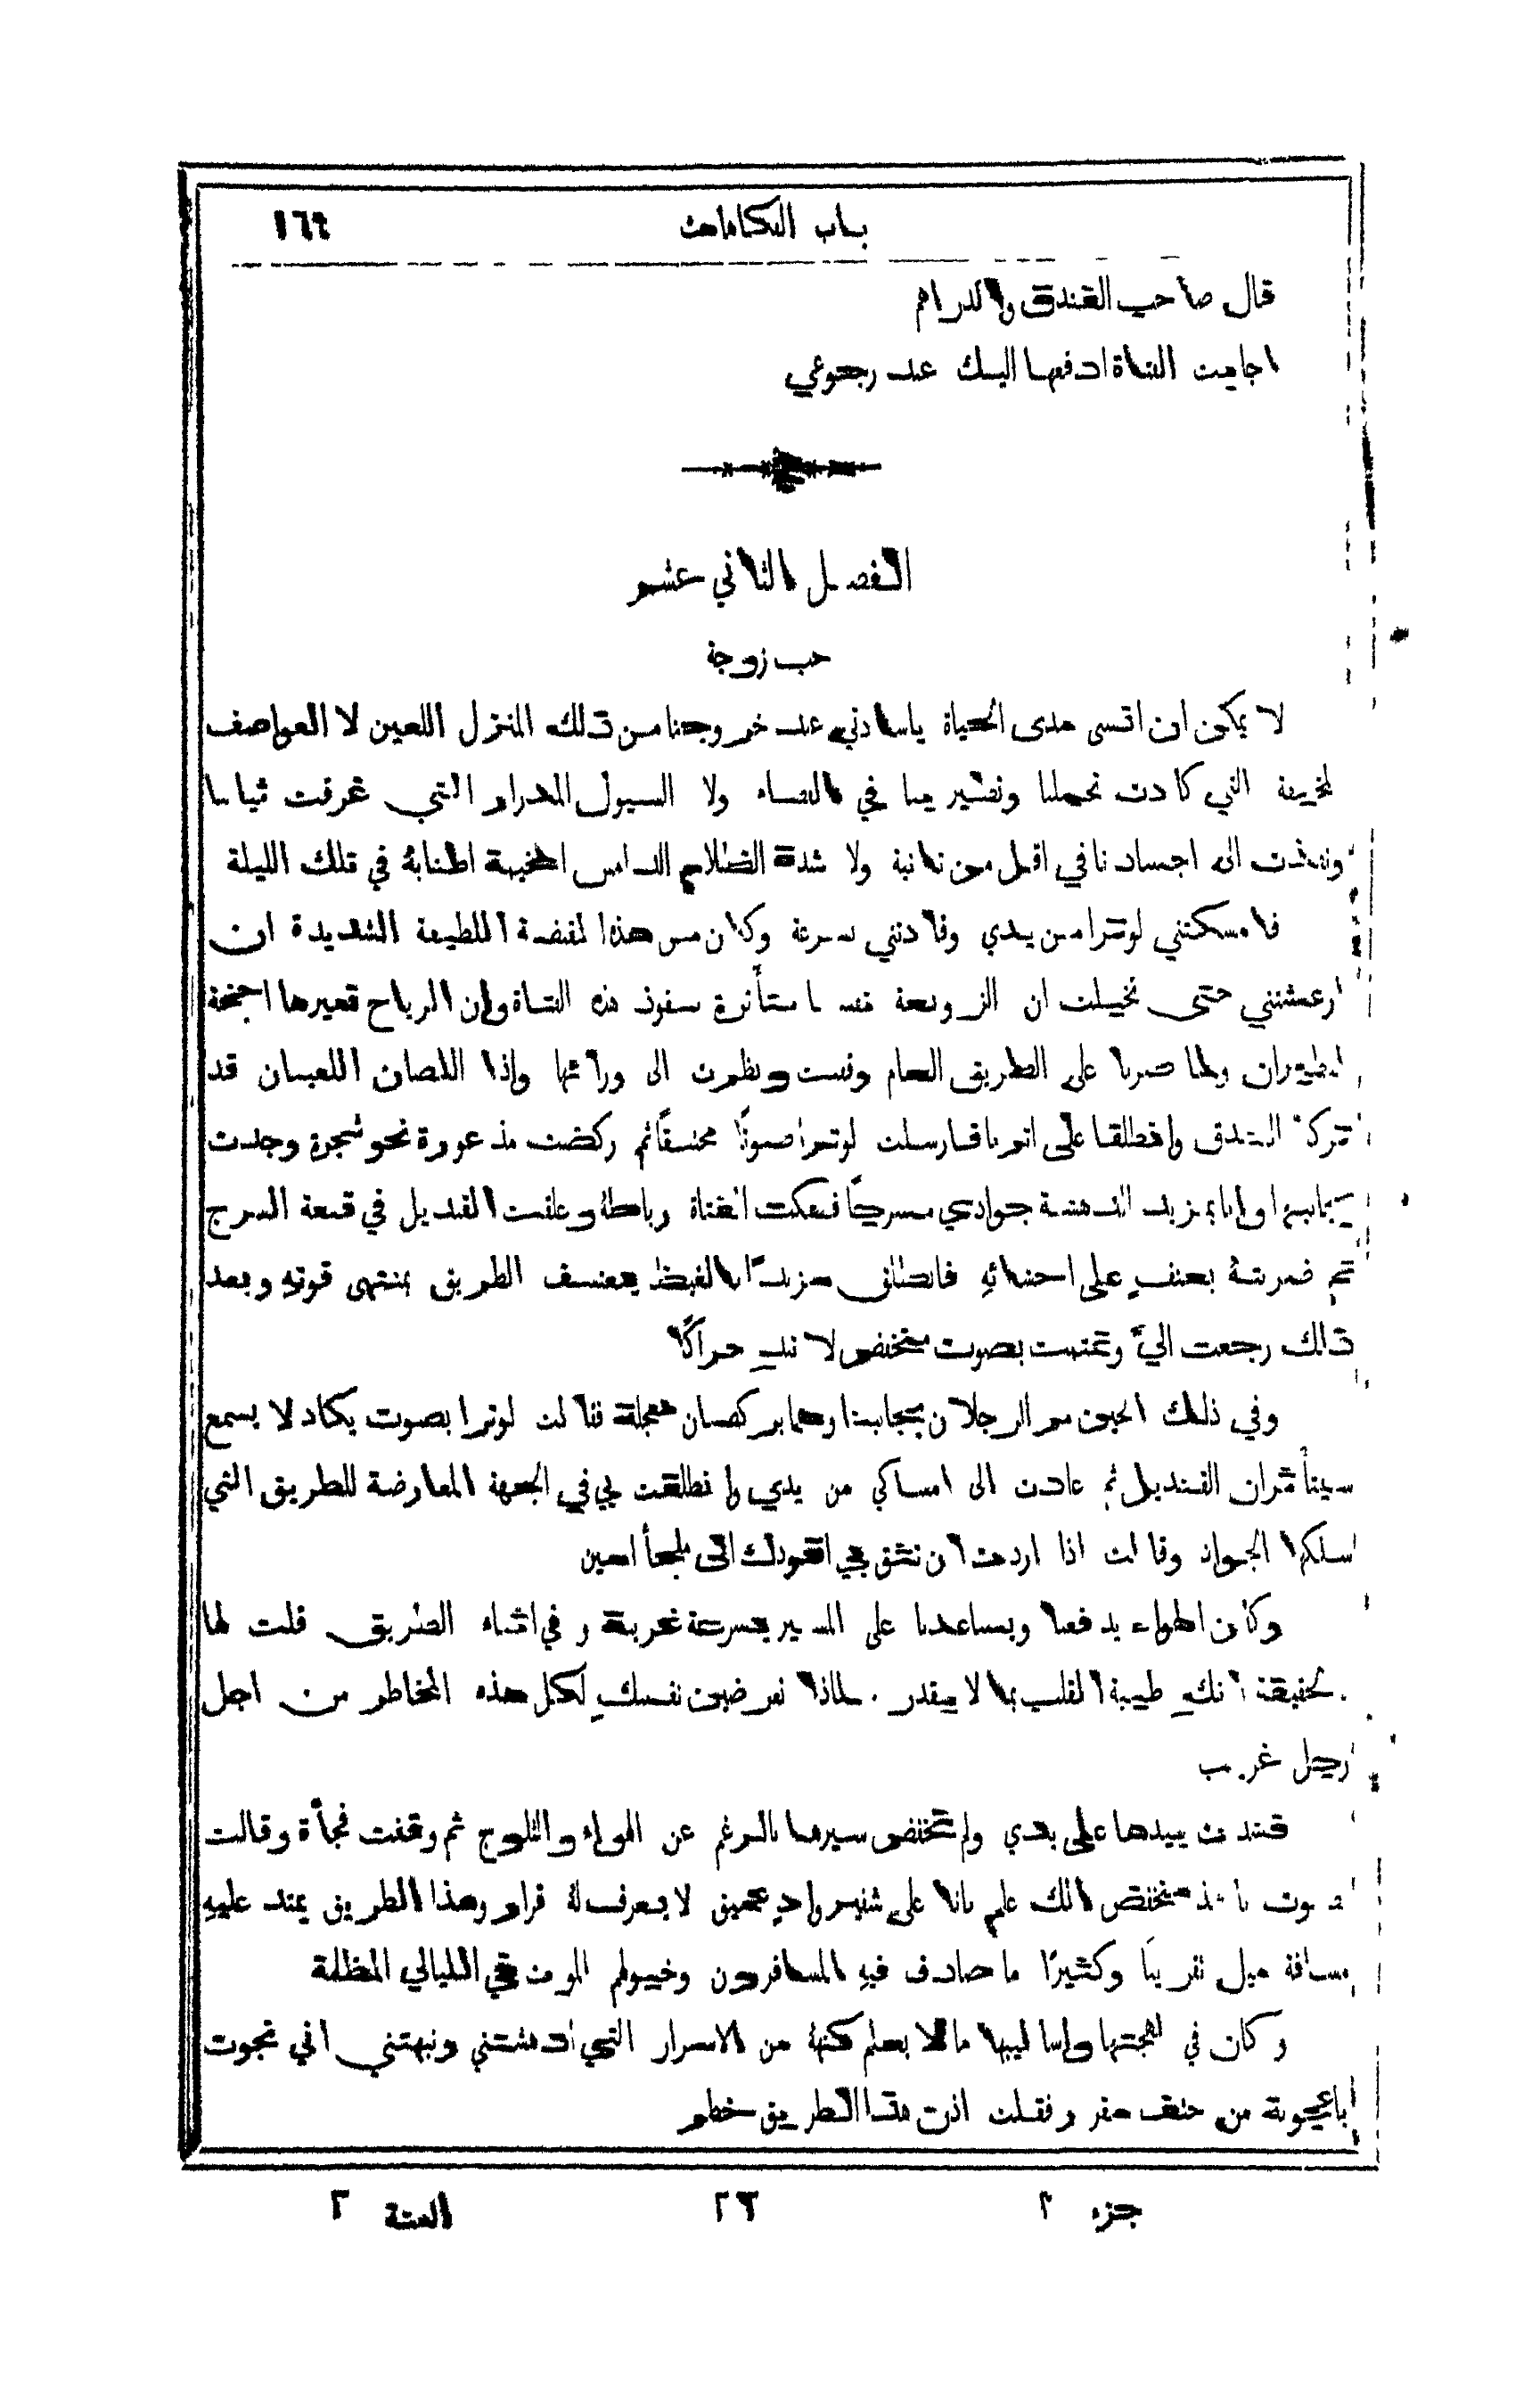 باب الفكاهات ١٦٩
قال صاحب الفندق والدراهم
اجابت الفتاة ادفعها اليك عند رجوعي
الفصل الثاني عشر
حب زوجة
لا يمكن ان انسى مدى الحياة ياسادتي عند خروجنا من ذلك المنزل اللعين لا العواصف
المخيفة التي كادت تحملنا وتطير بنا في الفضاء ولا السيول المدرار التي غرقت ثيابنا
ونفذت الى اجسادنا في اقل من ثانية ولا شدة الظلام الدامس المخيمة اطنابهُ في تلك الليلة
فامسكتني لوترا من يدي وقادتني بسرعة وكان من هذا القبضة اللطيفة الشديدة ان
ارعشتني حتى تخيلت ان الزوبعة نفسها متأثرة بنفوذ هذه الفتاة وان الرياح تعيرها اجنحة
للطيران ولما صرنا على الطريق العام وقفت ونظرت الى ورائها واذا اللصان اللعينان قد
تركا الفندق وانطلقا على اثرنا فارسلت لوترا صوتًا مختنقًا ثم ركضت مذعورة نحو شجرة وجدت
بجانبها وانا بمزيد الدهشة جوادي مسرجًا ففكت الفتاة رباطهُ وعلقت القنديل في قبعة السرج
ثم ضربتهُ بعنفٍ على احشائهِ فانطلق مزبدًا بالغيظ يعتسف الطريق بمنتهى قوتهِ وبعد
ذلك رجعت اليَّ وتمتمت بصوت منخفض لا تبدِ حراكًا
وفي ذلك الحين مر الرجلان بجانبنا وهما يركضان بعجلة فقالت لوترا بصوت يكاد لا يسمع
سيتأثران القنديل ثم عادت الى امساكي من يدي وانطلقت بي في الجهة المعارضة للطريق التي
سلكها الجواد وقالت اذا اردت ان تثق بي اقودك الى ملجأ امين
وكان الهواء يدفعنا ويساعدنا على السير بسرعة غريبة وفي اثناء الطريق قلت لها
الحقيقة انكِ طيبة القلب بما لا يقدر . لماذا تعرضين نفسكِ لكل هذه المخاطر من اجل
رجل غريب
فشدت بيدها على يدي ولم تخفض سيرها بالرغم عن الهواء والثلوج ثم وقفت فجأة وقالت
بصوت منخفض لك علم باننا على شفير وادٍ عميق لا يعرف لهُ قرار وهذا الطريق يمتد عليهِ
مسافة ميل تقريبًا وكثيرًا ما صادف فيهِ المسافرون وخيولهم الموت في الليالي المظلمة
وكان في لهجتها واساليبها ما لا يعلم كنههُ من الاسرار التي ادهشتني ونبهتني اني نجوت
باعجوبة من حتف مقرر فقلت اذن هذا الطريق خطر
جزء ٢ ٢٢ السنة ٢